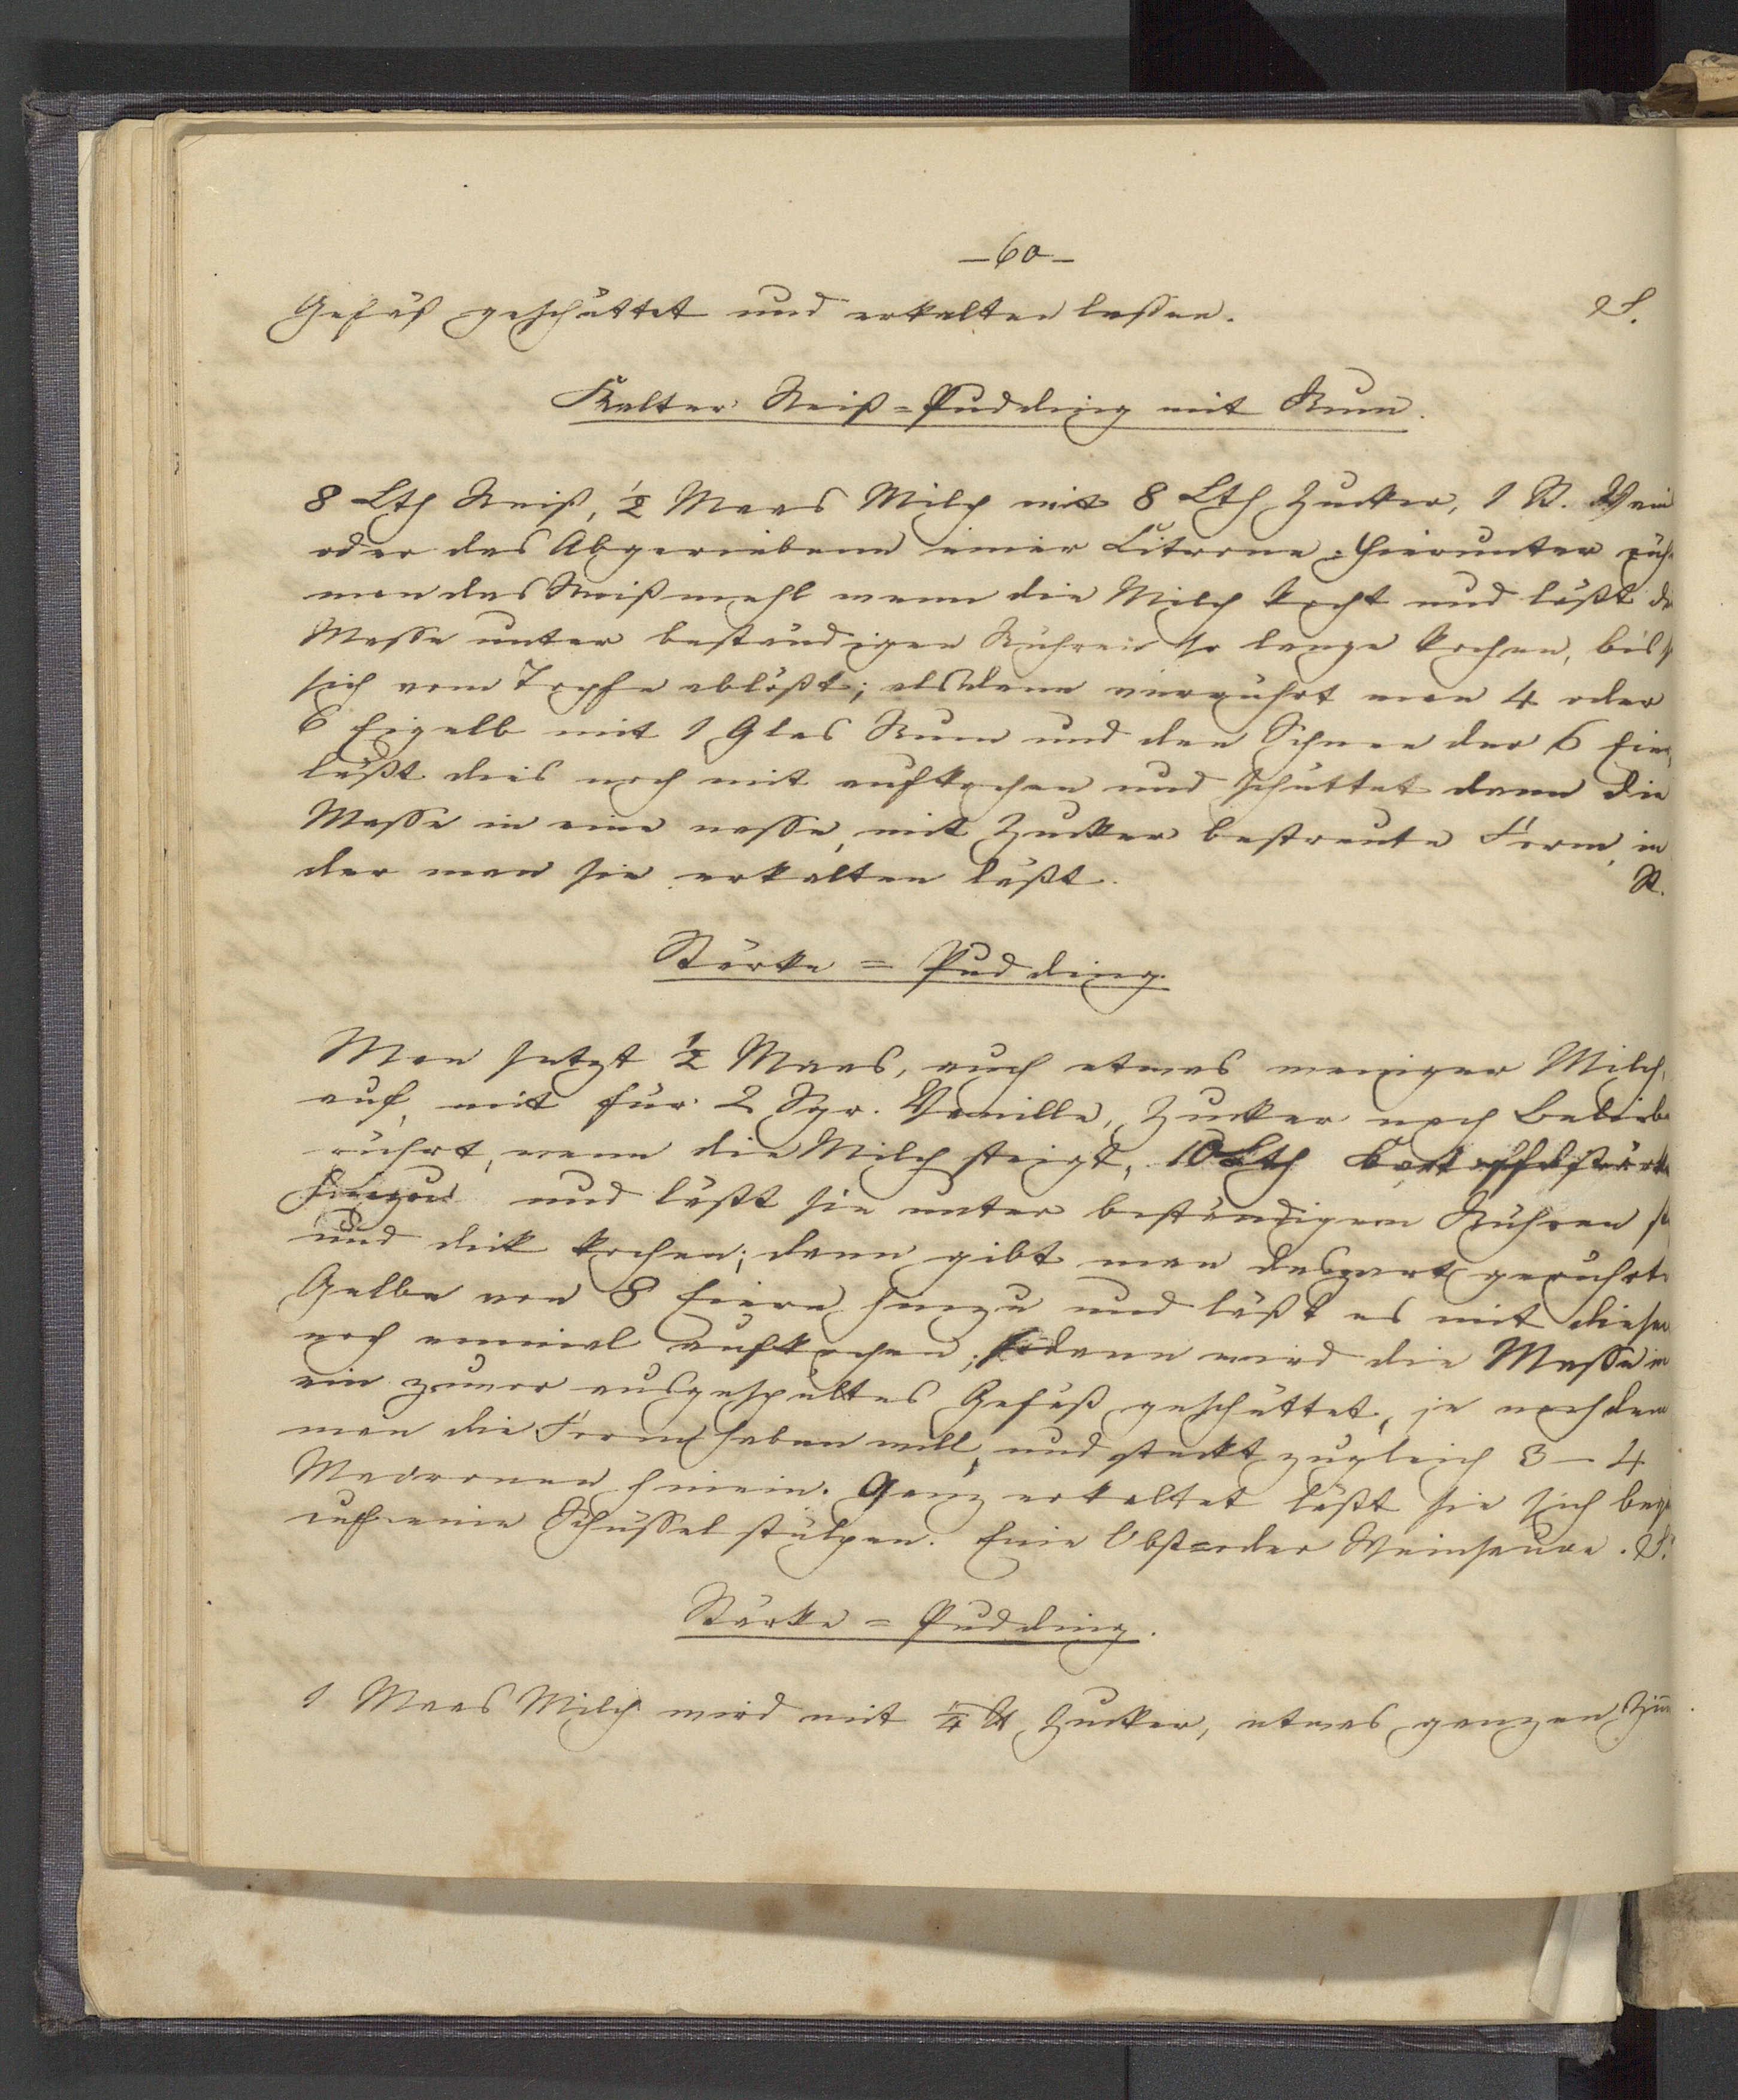 —60—
Gefäß geschüttet und erkalten lassen. S.
Kalter Reiß=Pudding mit Rum.
8 Lth Reiß, ½ Maas Milch mit 8 Lth Zucker, 1 St. Vani
oder das Abgeriebene einer Citrone. Hierunter rüh
man das Reißmehl wenn die Milch kocht und läßt di
Masse unter beständigen Rühren so lange kochen, bis s
sich vom Topfe ablößt; alsdann verrührt man 4 oder
6 Eigelb mit 1 Glas Rum und den Schnee der 6 Eier,
läßt dies noch mit aufkochen und schüttet dann die
Masse in eine nasse, mit Zucker bestreute Form, in
der man sie erkalten läßt. St.
Stärke = Pudding.
Man setzt ½ Maas, auch etwas weniger Milch,
auf, mit für 2 Sgr. Vanille, Zucker nach Beliebe
rührt, wenn die Milch steigt, 10 Lth Kartoffelstärke
hinzu und läßt sie unter beständigem Rühren
und dick kochen; dann gibt man das zart gerührte
Gelbe von 8 Eiern hinzu und läßt es mit diesen
noch einmal aufkochen; sodann wird die Masse in
ein zuvor ausgespültes Gefäß geschüttet, je nachdem
man die Form haben will, und steckt zugleich 3–4
Macronen hinein. Ganz erkaltet läßt sie sich beq
auf eine Schüssel stülpen. Eine Obst=oder Weinsauce. S.
Stärke = Pudding.
1 Maas Milch wird mit ¼ ℔ Zucker, etwas ganzen Zim